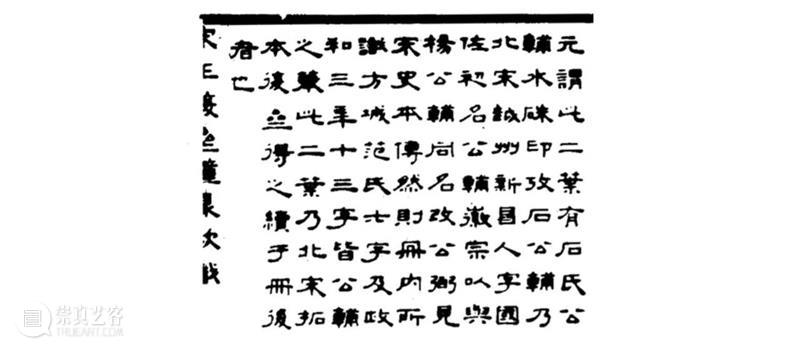 元謂此二葉有石氏公
輔水印攷石公輔乃
北宋越州新昌人字國
佐初名公輔徽宗以與
楊公輔同名改公弼見
宋史本傳然則冊內所
識方城范氏七字及政
和三年十三字皆公輔
之筆此二葉乃北宋拓
本復得之續于冊後
者也
崇真艺客
TRUEART.COM